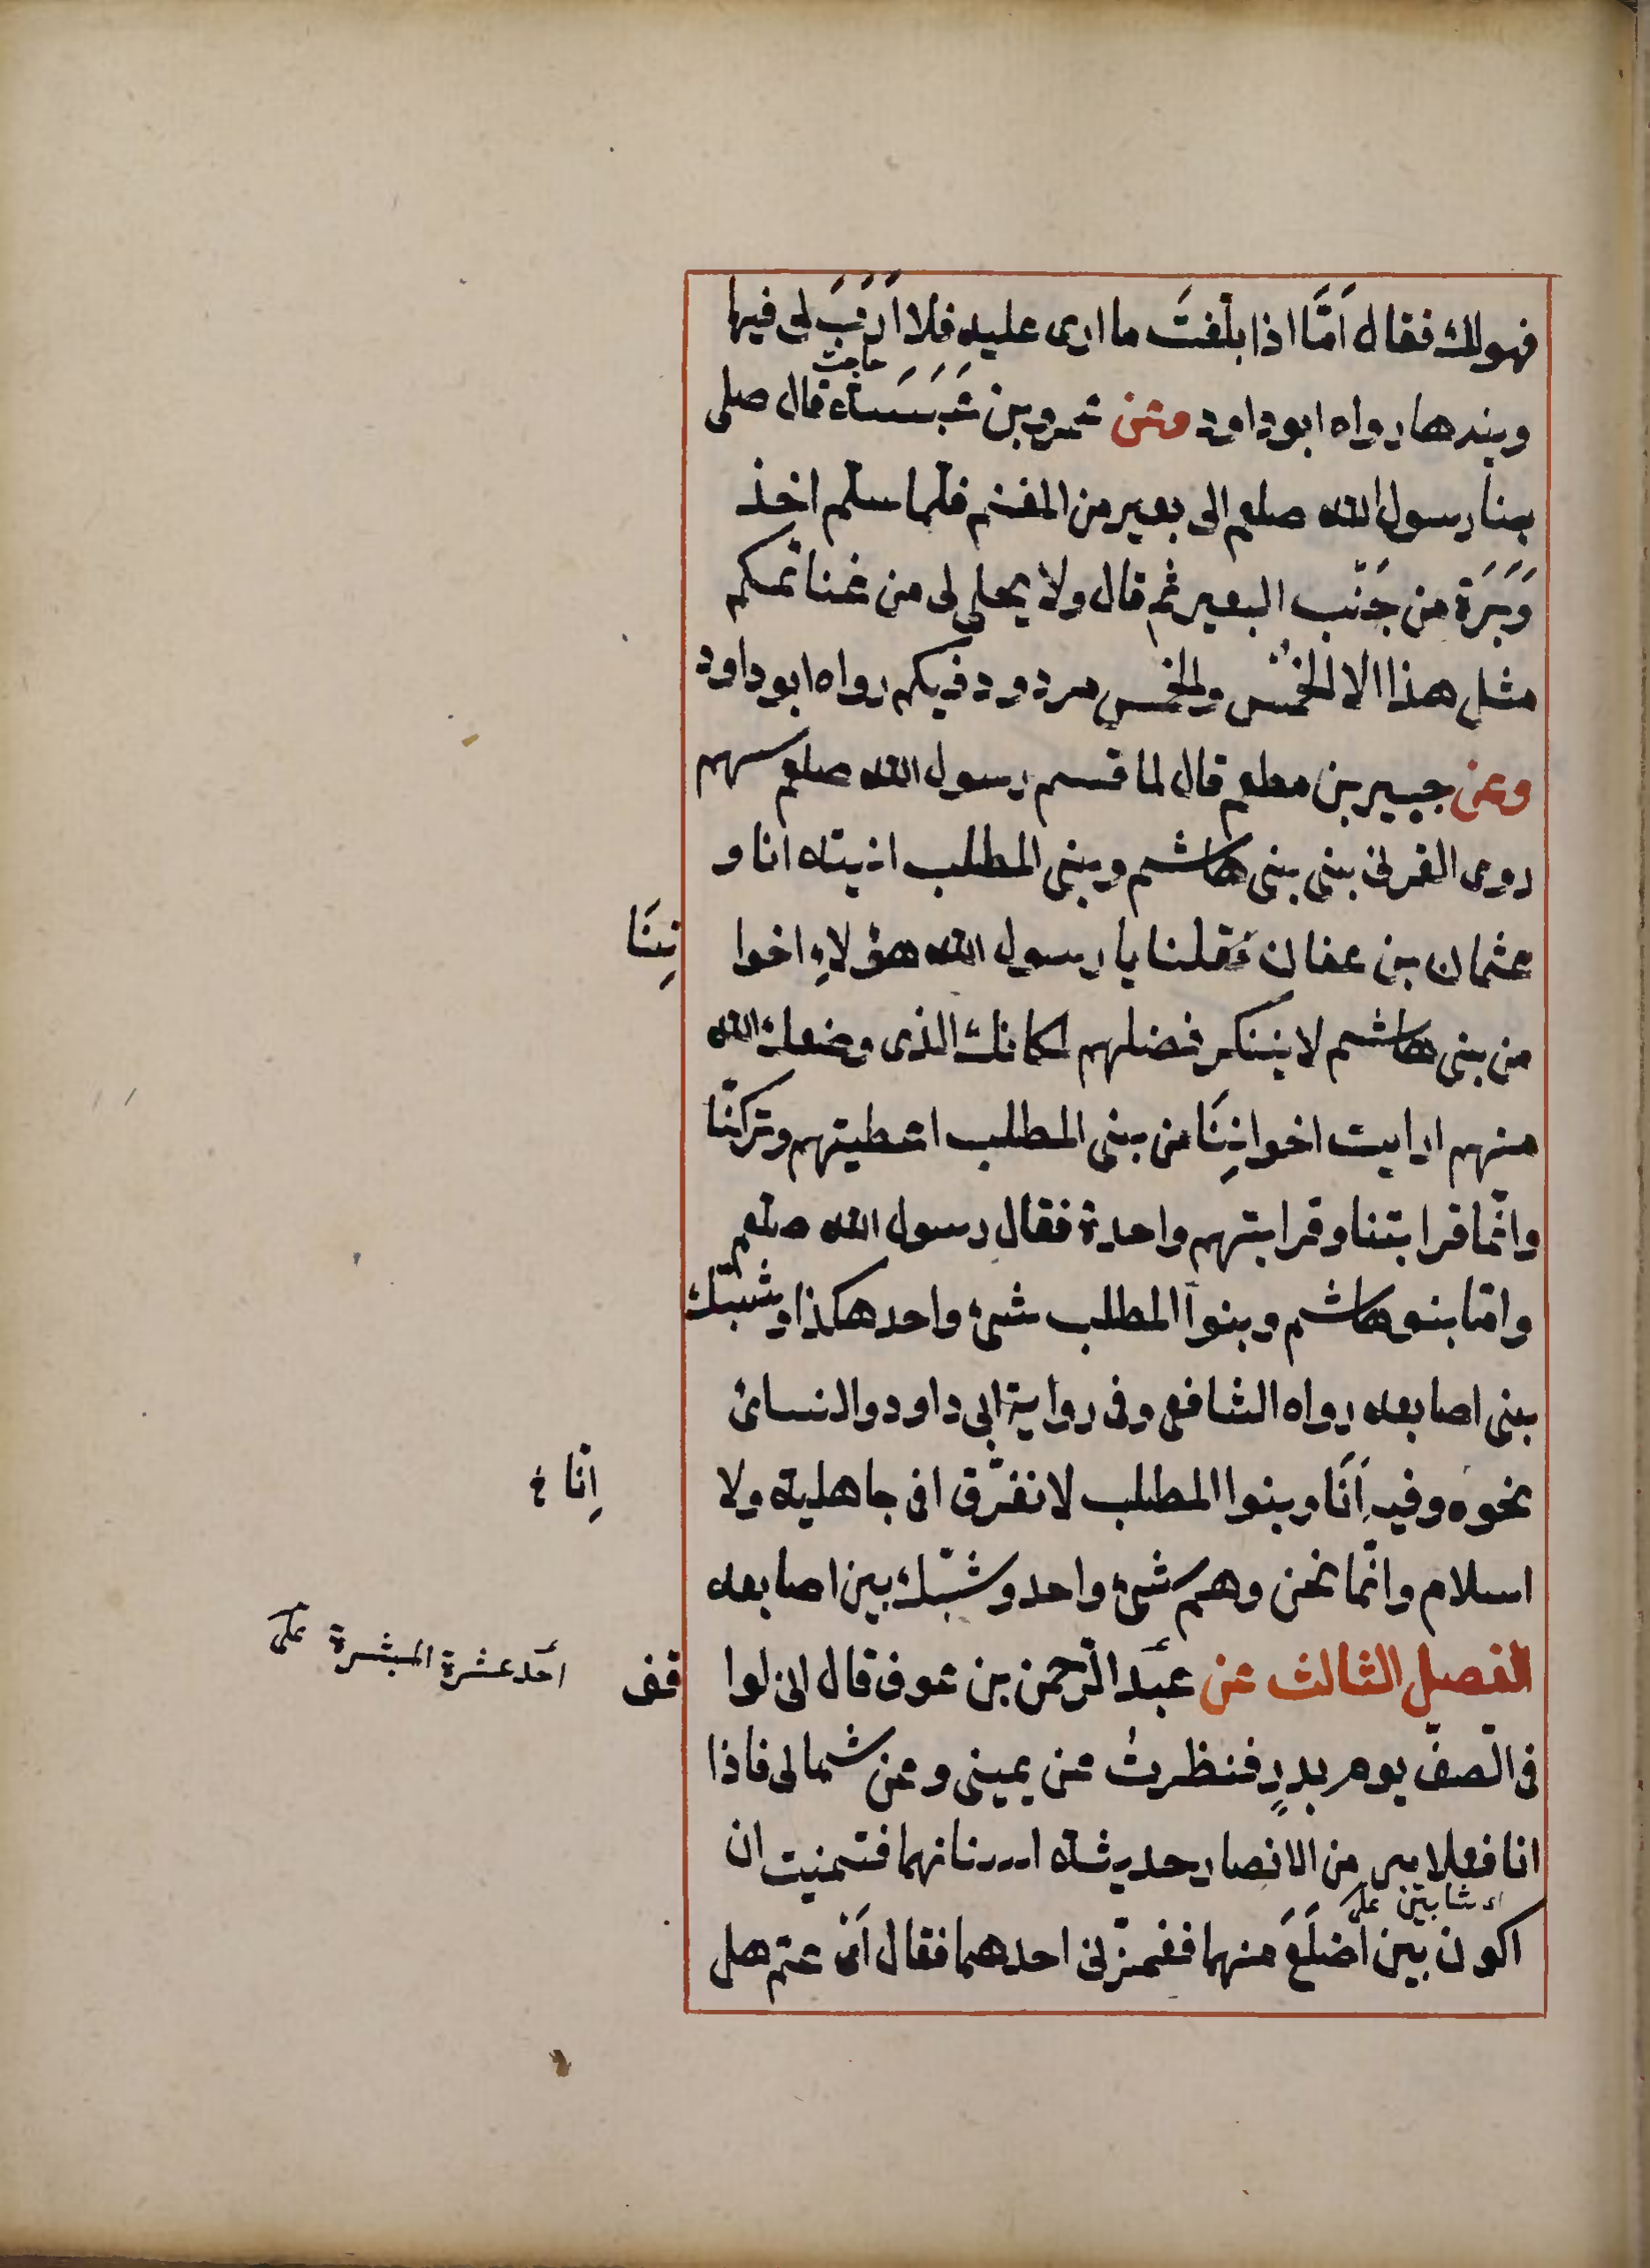 فهولك فقال اَمّا اذا بلغتَ ما ارى عليه فلا اَرَبَ لى فيها
حاجت
وبندها رواه ابو داود وعن عمرو بن عَبَسَة قال صلى
بنا رسول الله صلعم الى بعير من المغنم فلما سلّم اخذ
وَبَرَة من جَنْب البعير ثم قال ولا يحل لى من غنائمكم
مثل هذا الا الخمس والخمس مردود فيكم رواه ابو داود
وعن جبير بن مطعم قال لما قسم رسول الله صلعم سهم
ذوى القربى بنى بنى هاشم وبنى المطلب اتيته انا و
عثمان بن عفان فقلنا يا رسول الله هؤلاءِ اخوا
نِنَا
من بنى هاشم لا ننكر فضلهم لمكانك الذى وضعك الله
منهم ارايت اخوانِنَا من بنى المطلب اعطيتهم وتركتنا
وانّما قرابتنا وقرابتهم واحدة فقال رسول الله صلعم
وامّا بنو هاشم وبنوا المطلب شىء واحد هكذا وشبّك
بنى اصابعه رواه الشافعى وفى رواية ابى داود والنسائ
نحوه وفيه اَنَا وبنوا المطلب لا نفترق فى جاهلية ولا
اِنّا خ
اسلام وانّما نحن وهم شىء واحد وشبّك بين اصابعه
الفصل الثالث عن عبد الرّحمن بن عوف قال انى لوا
قف
احد عشرة المبشرة على
فى الصفّ يوم بدرٍ فنظرتُ عن يمينى وعن شمالى فاذا
انا فعلامين من الانصار حديثة اسنانهما فتمنيت ان
اى شابين على
اكون بين اَضلَعَ منهما فغمزنى احدهما فقال اَىْ عمّ هل